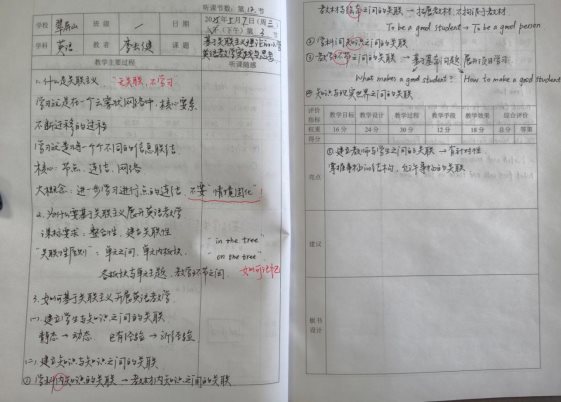 听课节数：第12节
学校 翠屏山 班级 一 日期 2025年1月7日(周二)
上午(下午)第2节
学科 英语 教者 李长健 课题 基于关联主义理论的小学
英语教学实践与思考
教学主要过程 听课随感
1.什么是关联主义 "无关联,不学习"
学习这是在一个云雾状网络中,核心要素
不断迁移的过程
学习就是将一个个不同的信息联结
核心：节点、连结、网络
大概念：进一步学习进行点的连结,不要"情境固化"!
2.为什么要基于关联主义展开英语教学
课标要求：整合性、建立关联性 "in the tree"
"关联性原则"：单元之间、单元内板块、 "on the tree"
各板块与单元主题、教学环节之间 如何记忆
3.如何基于关联主义开展英语教学
(一).建立学生与知识之间的关联
静态→动态 已有经验→新经验
(二).建立知识与知识之间的关联
①学科内知识的关联→教材内知识之间的关联
教材与绘本之间的关联→拓展教材,不拘泥于教材
To be a good student → To be a good person
②学科间知识之间的关联
③教学环节之间的关联→基于基本问题,展开顶层学习
What makes a good student? How to make a good student
④知识与现实世界之间的关联
评价指标 教学目标 教学设计 教学过程 教学手段 教学效果 综合评价
权重 16分 24分 30分 12分 18分 总分 等第
得分
①建立教师与学生之间的关联→有针对性
亮点 掌握事物的结构,允许事物的关联
建议
板书
设计